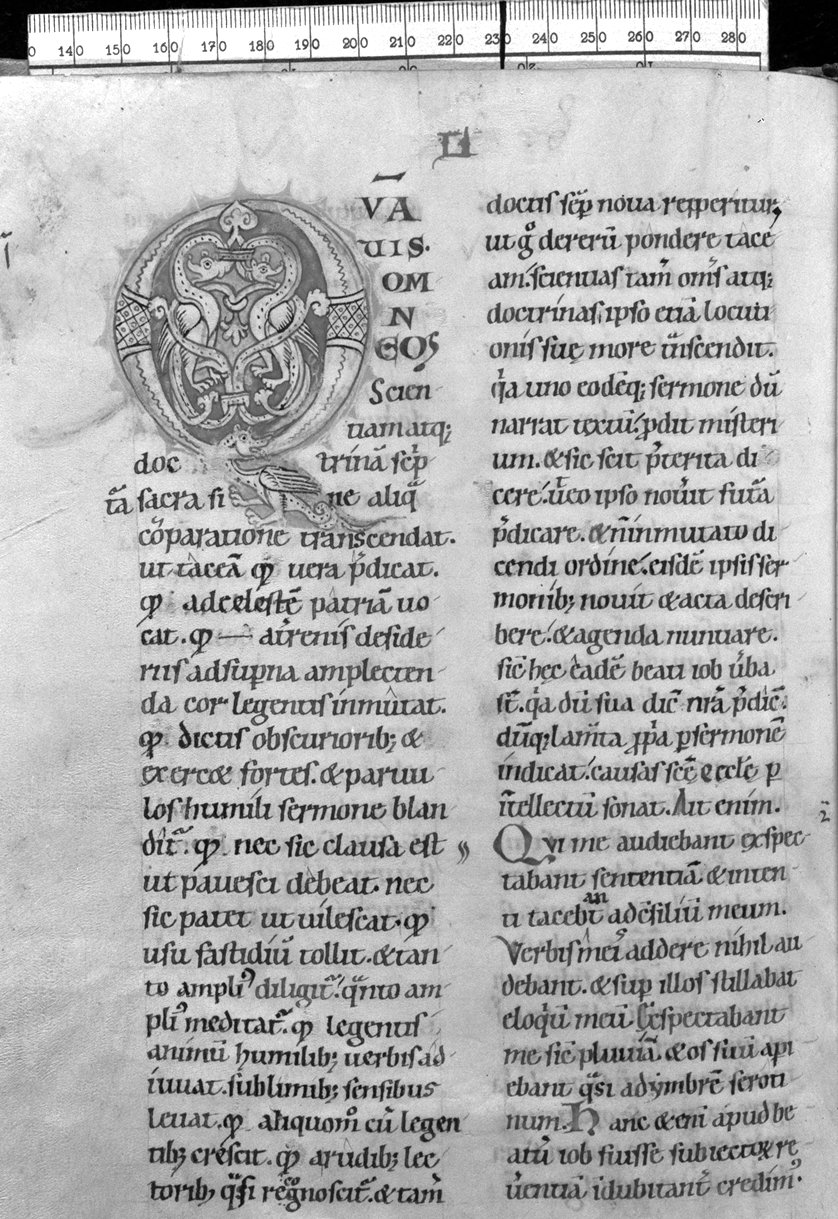 0 140 150 160 170 180 190 200 210 220 230 240 250 260 270 280
LI
QVĀ
UIS.
OM
N
EOS
Scien
tiamatq;
doc trinā sc̄p
t̄a sacra si ne aliq̄
cōparatione transcendat.
ut taceā qđ uera p̄dicat.
qđ adcelestē patriā uo
cat. qđ — a tr̄enis deside
riis ad sup̱na amplecten
da cor legentis inmutat.
qđ dictis obscuriorib; &
exercet fortes. & paruu
los humili sermone blan
dit᷑. qđ nec sic clausa est
ut pauesci debeat. nec
sic patet ut uilescat. qđ
usu fastidiū tollit. & tan
to ampliꝰ diligit᷑. q̄nto am
pliꝰ meditat᷑. qđ legentis
animū humilib; uerbis ad
iuuat. sublimib; sensibus
leuat. qđ aliquom̊ cū legen
tib; crescit. qđ a rudib; lec
torib; q̄si recognoscit᷑. & tam̄
doctis sēp noua repperitur;
ut g̊ de rerū pondere tace
am. scientias tam̄ om̄s atq;
doctrinas ipso etiā locuti
onis sue more t̄nscendit.
q̓a uno eodēq; sermone dū
narrat textū. p̱dit misteri
um. & sic scit p̄terita di
cere. ut eo ipso nouit futu᷑a
p̄dicare. & n̄ inmutato di
cendi ordine. eisdē ipsis ser
monib; nouit & acta descri
bere. & agenda nuntiare.
sic̄ hec eadē beati iob uerba
st̄. q̓a dū sua dic̄ nr̄a p̄dic̄.
dūq; lam̄ta p̱p̓a p̱ sermonē
indicat. causas sc̄e eccl̄e p̱
īntellectū sonat. Ait enim.
Qui me audiebant exspec
tabant sententiā & inten
ti tacebant ad c̄siliū meum.
Verbis meis addere nihil au
debant. & sup̱ illos stillabat
eloq̓ū meū. Exspectabant
me sic̄ pluuiā. & os suū api
ebant q̄si ad ymbrē seroti
num. Hanc & eni apud be
atū iob fuisse subiectox re
uerentiā indubitanter credimꝰ.